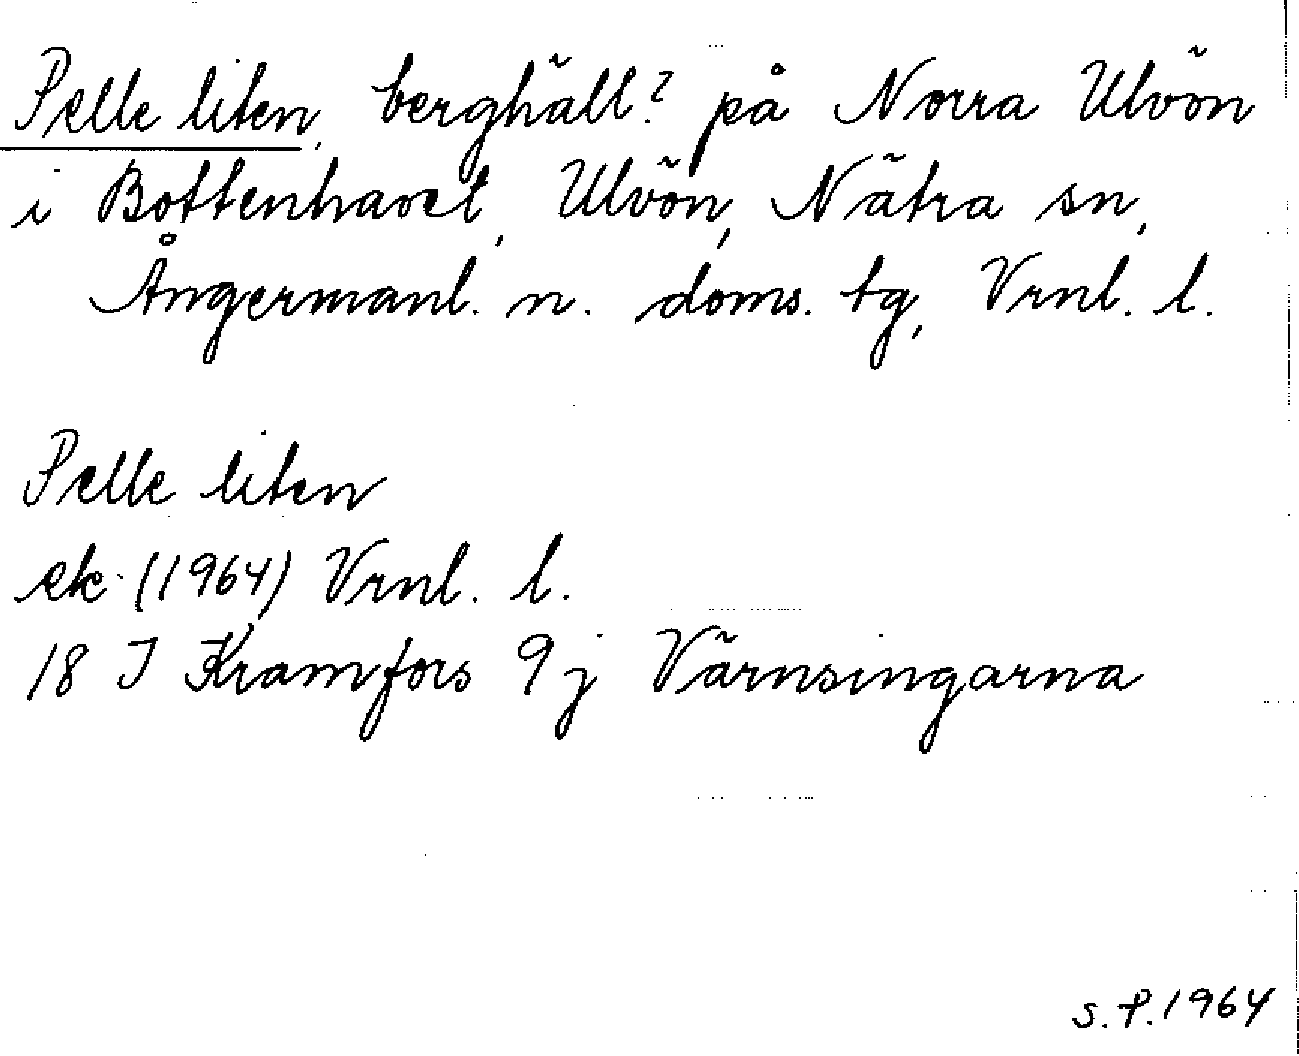 Pelle liten, berghäll? på Norra Ulvön
i Bottenhavet, Ulvön, Nätra sn,
Ångermanl. n. doms. tg, Vrnl. l.
Pelle liten
ek. (1964) Vrnl. l.
18 I Kramfors 9j Värnsingarna
S.P. 1964